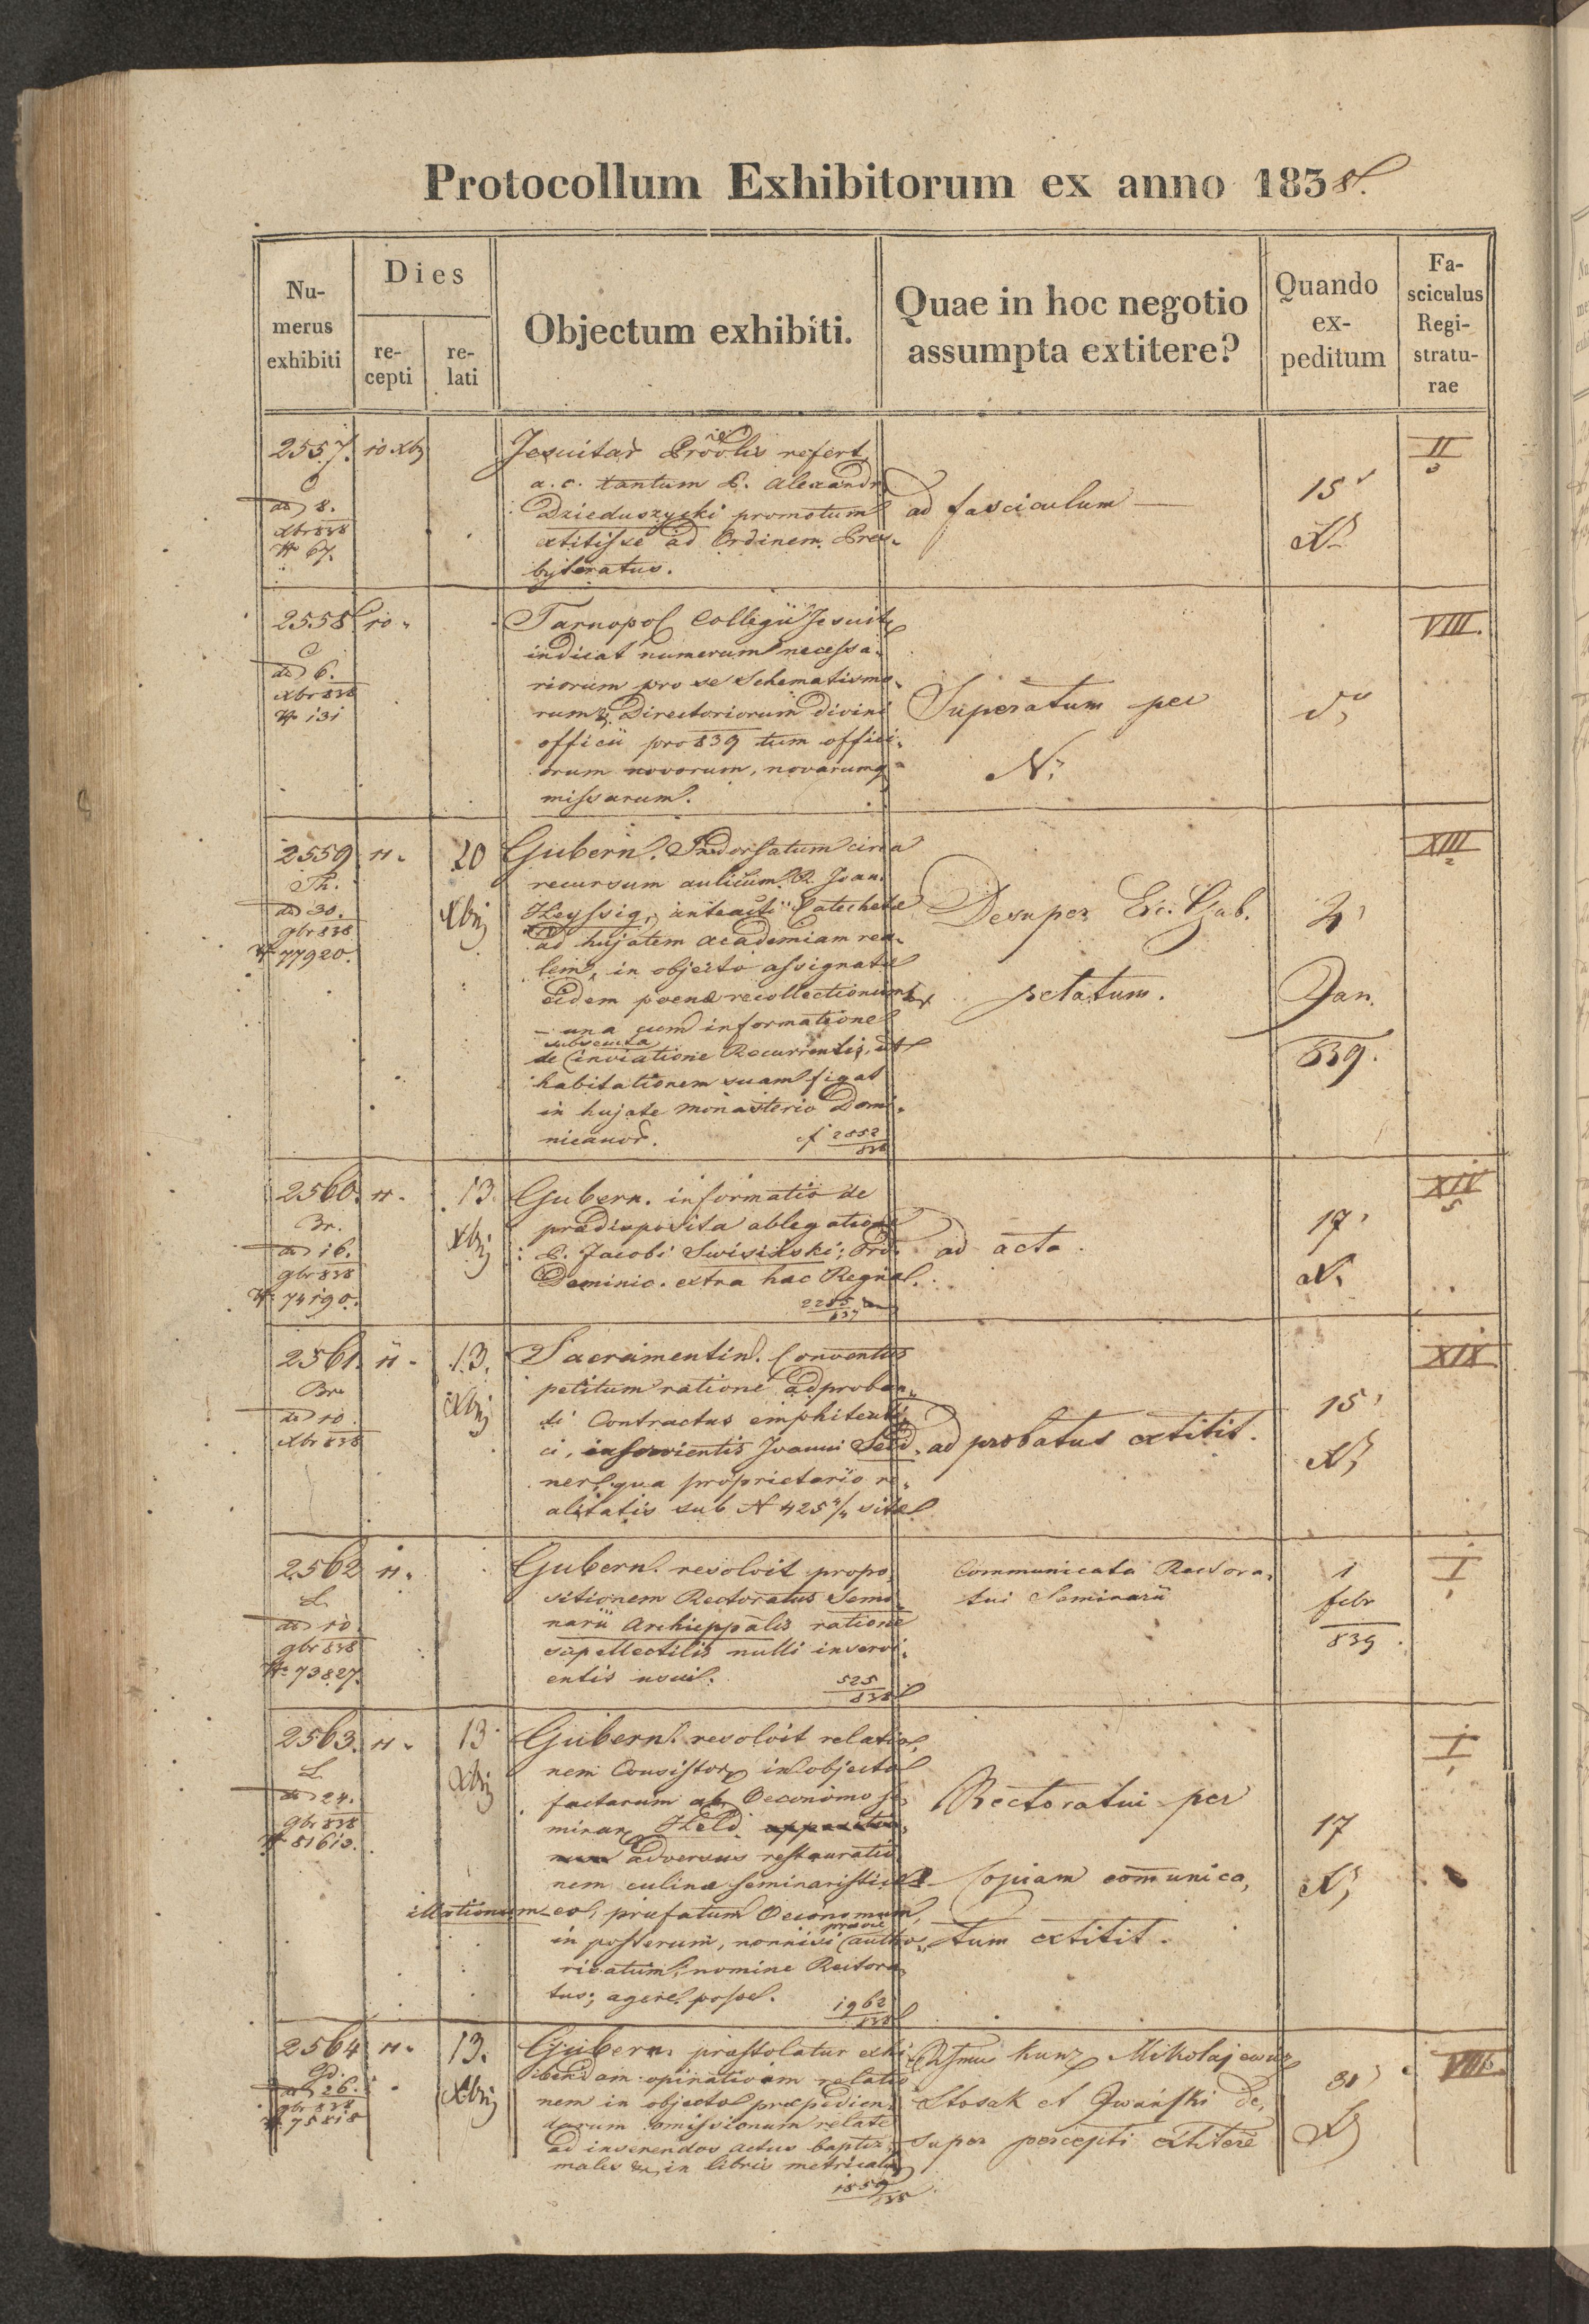 Protocollum Exhibitorum ex anno 1838.
Nu-
merus
exhibiti
Dies
re-
cepti
re-
lati
Objectum exhibiti.
Quae in hoc negotio
assumpta extitere?
Quando
ex-
peditum
Fa-
sciculus
Regi-
stratu-
rae
2557. 10 Xbr
ad 8.
Xbr 838
N 67.
Jesuitar refert,
a. c. tantum P. Alexandr
Dzieduszycki promotum
extitisse ad Ordinem Pres-
byteratus.
ad fasciculum
15
II
3
2558 10
ad 6.
Xbr 838
N 131
Tarnopol Collegii Jesuit
indicat numerum necessa-
riorum pro se Schematismo-
rum & Directoriorum divini
officii pro 839 tum offici-
orum novorum, novarumq
missarum.
Superatum per
N.
VIII.
2559 11. 20
Th.
ad 30.
9br 838
N 77920.
Xbr
Gubern. Indorsatum circa
recursum aulicum R. Joan.
Heyssig, anteacti Catechetae
ad hujatem academiam rea-
lem, in objecto assignatae
eidem poenae recollectionum
una cum informatione
subsecuta
de inviatione Recurrentis, ut
habitationem suam figat
in hujate Monasterio Domi-
nicanor. cf 2852
838
Desuper Exc. Gub.
Jan.
839.
XIII
2
2560. 11. 13.
Br.
ad 16.
9br 838
N 74190.
Xbr
Gubern. informatio de
praedisposita ablegatione
P. Jacobi Swisinski, Ord.
Dominic. extra hac Regna.
ad acta.
17
XIV
5
2561. 11. 13.
Br.
ad 10.
Xbr 838
Xbr
Sacramentin. Conventus
petitum ratione adproban-
di Contractus emphiteuti-
ci, inservientis Joanni Seid-
ner, qua proprietario re-
alitatis sub N 425 4/4 sitae
adprobatus extitit.
15
XIX
2562 11.
L.
ad 10.
9br 838
N 73827.
Gubern. resolvit propo-
sitionem Rectoratus Semi-
narii Archieppalis ratione
supellectilis nulli inservi-
entis usui. 525
838
Communicata Rectora-
tui Seminarii
1
febr
839
I
2563. 11. 13
L.
ad 24.
9br 838
N 81613.
Xbr
Gubern. resolvit relatio-
nem Consistor in objecto
factarum ab Oeconomo se-
minar Held
adversus restauratio-
nem culinae seminaristicae
illationum eo, praefatum Oeconomum,
praevie
in posterum, nonnisi autho-
risatum, nomine Rectora-
tus, agere posse. 1962
838
Rectoratui per
Copiam communica-
tum extitit.
17
I
2564 11. 13.
Gd.
ad 26.
9br 838
N 75818
Xbr
Gubern. praestolatur exhi-
bendam opinativam relatio-
nem in objecto praepedien-
darum omissionum relate
ad inserendos actus baptis-
males &, in libris metricalib
1859
838
Kunz Mikolajewicz
Stosak et Iwański de-
super percepti extitere
VIII.